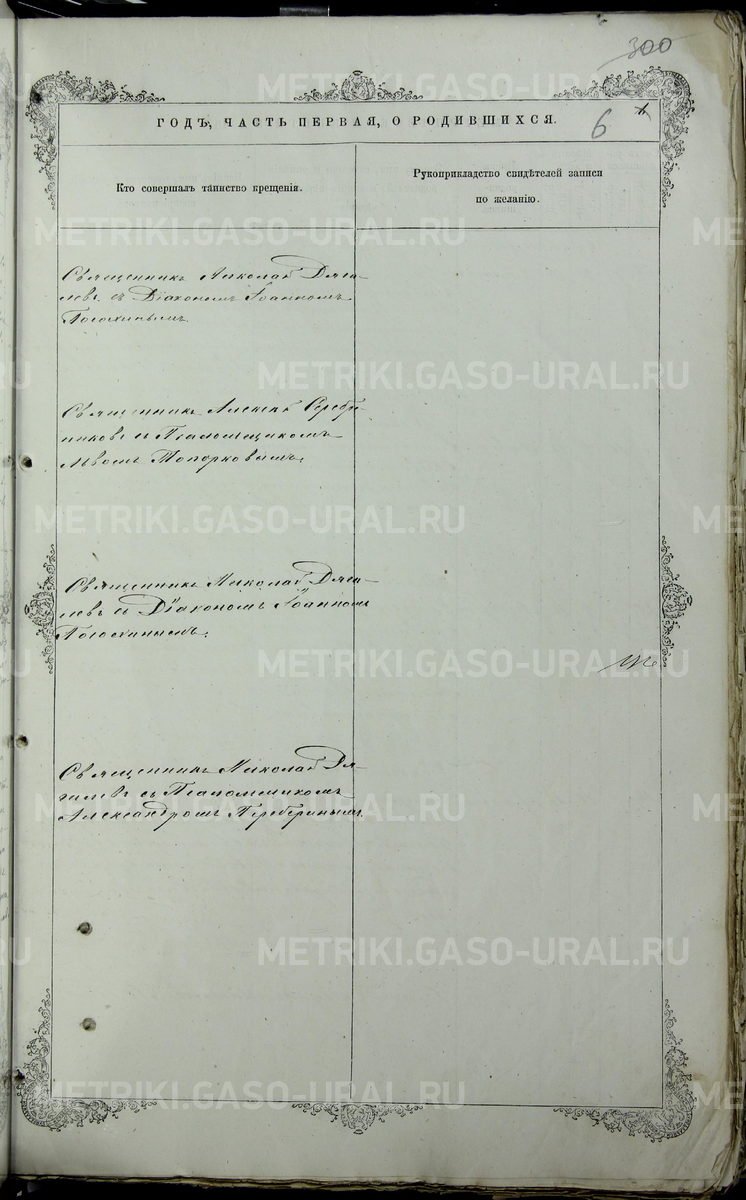 300
ГОДЪ, ЧАСТЬ ПЕРВАЯ, О РОДИВШИХСЯ.
6
Кто совершалъ таинство крещенія.
Рукоприкладство свидѣтелей записи
по желанію.
Священникъ Николай Дяги-
левъ съ Діакономъ Іоанномъ
Священникъ Алексѣй Серебре-
никовъ съ Псаломщикомъ
Львомъ Топорковымъ.
Священникъ Николай Дяги-
левъ съ Діакономъ Іоанномъ
Священникъ Николай Дя-
гилевъ съ Псаломщикомъ
Александромъ
METRIKI.GASO-URAL.RU